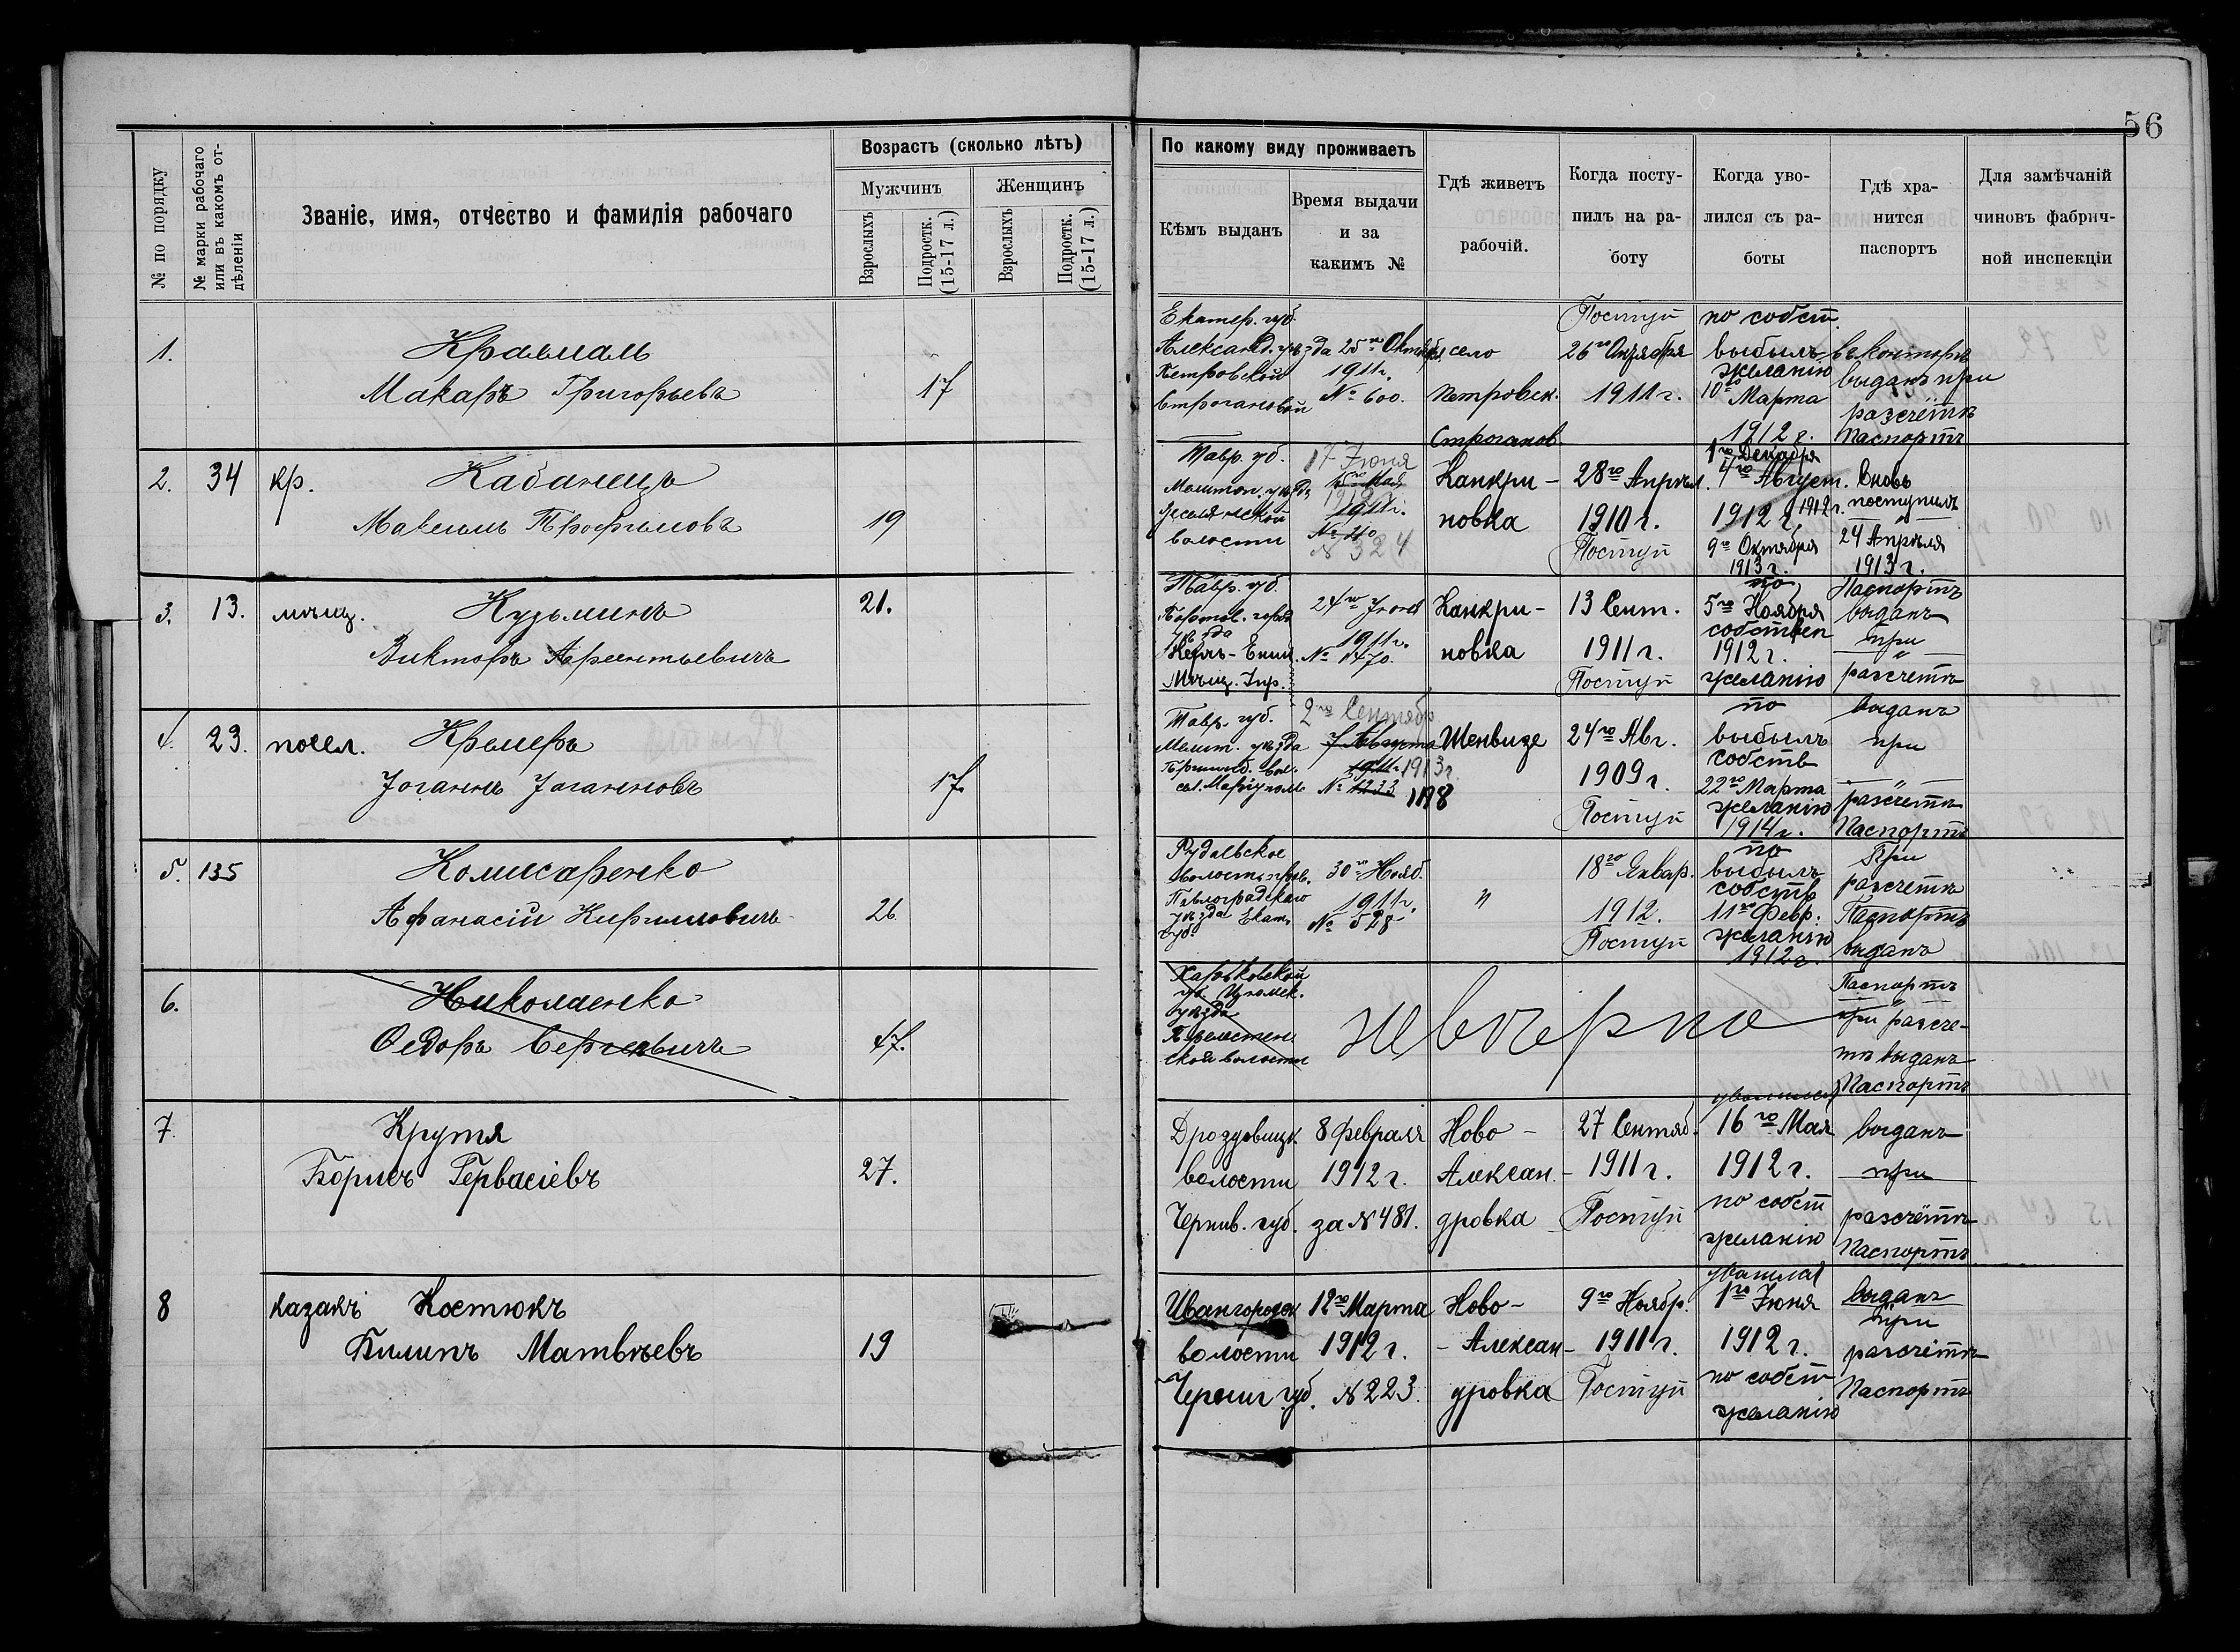 56
№ по порядку
№ марки рабочаго или въ какомъ отдѣленіи
Званіе, имя, отчество и фамилія рабочаго
Возрастъ (сколько лѣтъ)
Мужчинъ
Женщинъ
Взрослыхъ
Подростк. (15-17 л.)
Взрослыхъ
Подростк. (15-17 л.)
По какому виду проживаетъ
Кѣмъ выданъ
Время выдачи и за какимъ №
Гдѣ живетъ рабочій.
Когда поступилъ на работу
Когда уволился съ работы
Гдѣ хранится паспортъ
Для замѣчаній чиновъ фабричной инспекціи
1.
Макаръ Григорьевъ
17
Екатер. губ.
Александ. уѣзда
Петровской
25го Октяб.
1911г.
№ 600.
село
Петровск.
Строганов
Поступ
26го Октября
1911 г.
по собст.
выбылъ
желанію
10го Марта
1912 г.
въ конторѣ
выданъ при
разсчётѣ
Паспортъ
2.
34
кр.
Кабанецъ
Максимъ Трофимовъ
19
Тавр. губ.
Мелитоп. уѣзд
волости
17 Июня
1912 г.
1911г.
№ 324
Канкри-
новка
28го Апрѣл.
1910 г.
Поступ
1го Декабря
4го Август.
1912 г.
1912 г.
9го Октября
1913 г.
Вновь
поступилъ
24 Апрѣля
1913 г.
3.
13.
мѣщ.
Кузьминъ
Викторъ
21.
Тавр. губ.
уѣзда
Мѣщ. Упр.
24го Іюня
1911г.
№ 1470.
Канкри-
новка
13 Сент.
1911 г.
Поступ
по
5го Ноября
собствен
1912 г.
желанію
Паспортъ
выданъ
при
разсчетѣ
4.
23.
посел.
Крамеръ
Іоганнъ Іоганновъ
17.
Тавр. губ.
Мелит. уѣзда
2го Сентябр
7 Августа
1911г. 1913г.
№ 1233 1178
Шенвизе
24го Авг.
1909 г.
Поступ
по
выбылъ
собств
22го Марта
желанію
1914 г.
выданъ
при
разсчетѣ
Паспортъ
5.
135
Комисаренко
Афанасій Кирилловичъ
26
Павлоградскаго
уѣзда Екат.
губ.
30го Нояб.
1911г.
№ 528
"
18го Январ.
1912.
Поступ
по
выбылъ
собств
11го Февр.
желанію
1912 г.
При
разсчетѣ
Паспортъ
выданъ
6.
Николаенко
Ѳедоръ Сергѣевичъ
47.
Харьковской
губ. Изюмск.
уѣзда
ской волости
Паспортъ
при разсче-
тѣ выданъ
Паспортъ
7.
Крутя
Борисъ Гервасіевъ
27.
Дроздовицк.
волости
Черниг. губ.
8 февраля
1912 г.
за № 481.
Ново-
Алексан-
дровка
27 Сентяб.
1911 г.
Поступ
уволился
16го Мая
1912 г.
по собст
желанію
выданъ
при
разсчётѣ
Паспортъ
8
казакъ Костюкъ
Филипъ Матвѣевъ
19
Ивангородск
волости
Черниг губ.
12го Марта
1912 г.
№ 223.
Ново-
-Алексан-
дровка
9го Ноябр.
1911 г.
Поступ
уволился
1го Іюня
1912 г.
по собст
желанію
выданъ
при
разсчётѣ
Паспортъ